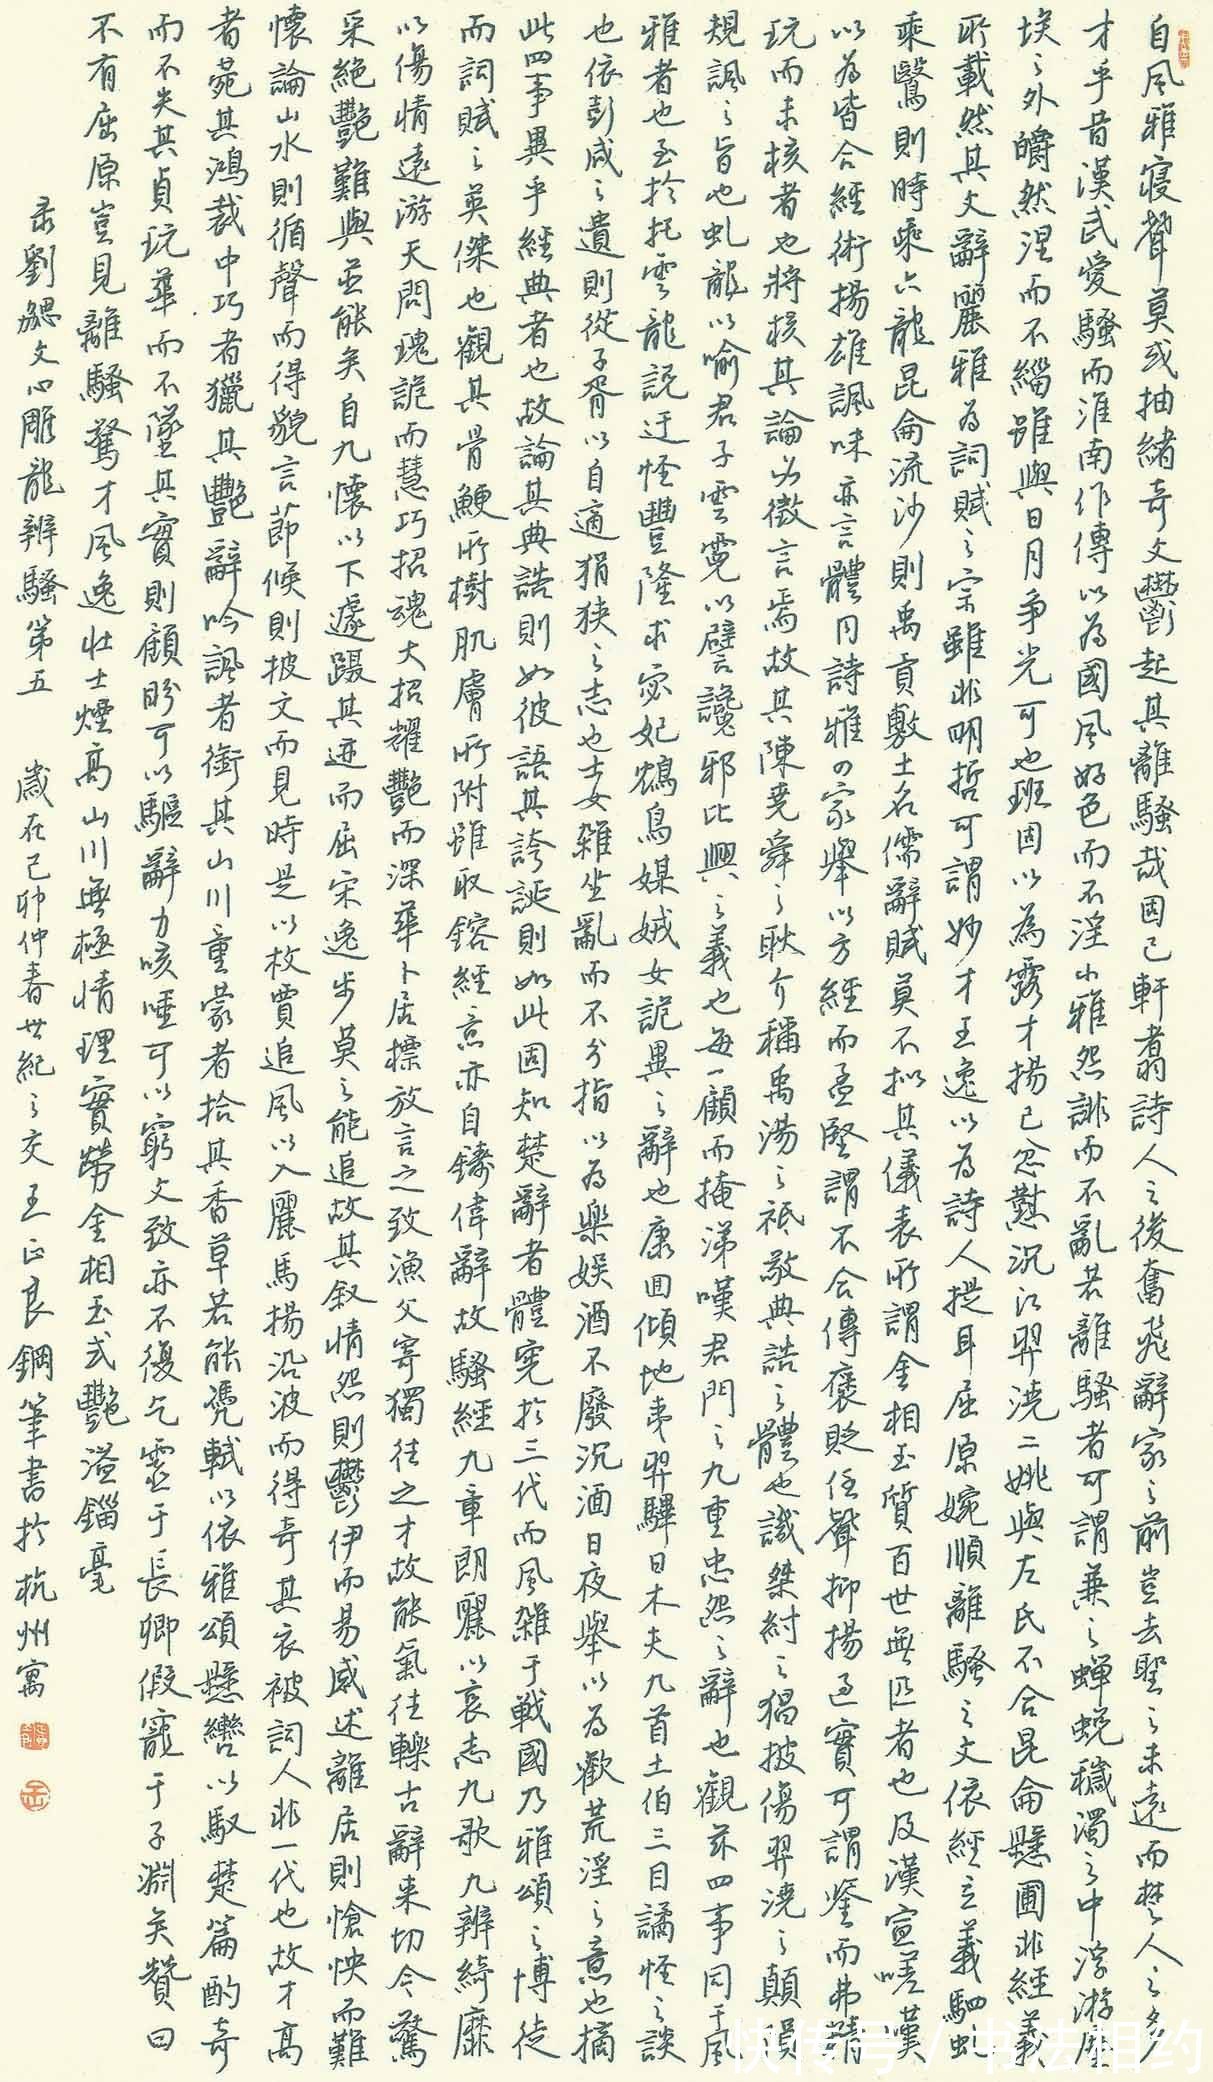 自風雅寢聲莫或抽緒奇文鬱起其離騷哉固已軒翥詩人之後奮飛辭家之前豈去聖之未遠而楚人之多
才乎昔漢武愛騷而淮南作傳以為國風好色而不淫小雅怨誹而不亂若離騷者可謂兼之蟬蛻穢濁之中浮游塵
埃之外皭然涅而不緇雖與日月爭光可也班固以為露才揚己忿懟沉江羿澆二姚與左氏不合昆侖懸圃非經義
所載然其文辭麗雅為詞賦之宗雖非明哲可謂妙才王逸以為詩人提耳屈原婉順離騷之文依經立義駟虬
乘鷖則時乘六龍昆侖流沙則禹貢敷土名儒辭賦莫不拟其儀表所謂金相玉質百世無匹者也及漢宣嗟嘆
以為皆合經術揚雄諷味亦言體同詩雅四家舉以方經而孟堅謂不合傳褒貶任聲抑揚過實可謂鑒而弗精
玩而未核者也將核其論必徵言焉故其陳堯舜之耿介稱禹湯之祗敬典誥之體也譏桀紂之猖披傷羿澆之顛隕
規諷之旨也虬龍以喻君子雲霓以譬讒邪比興之義也每一顧而掩涕嘆君門之九重忠怨之辭也觀茲四事同于風
雅者也至於托雲龍說迂怪豐隆求宓妃鴆鳥媒娀女詭異之辭也康回傾地夷羿彃日木夫九首土伯三目譎怪之談
也依彭咸之遺則從子胥以自適狷狹之志也士女雜坐亂而不分指以為樂娛酒不廢沉湎日夜舉以為歡荒淫之意也摘
此四事異乎經典者也故論其典誥則如彼語其誇誕則如此固知楚辭者體憲於三代而風雜于戰國乃雅頌之博徒
而詞賦之英傑也觀其骨鯁所樹肌膚所附雖取鎔經意亦自鑄偉辭故騷經九章朗麗以哀志九歌九辨綺靡
以傷情遠游天問瑰詭而慧巧招魂大招耀艷而深華卜居摽放言之致漁父寄獨往之才故能氣往轢古辭来切今驚
采絕艷難與並能矣自九懷以下遽躡其迹而屈宋逸步莫之能追故其叙情怨則鬱伊而易感述離居則愴怏而難
懷論山水則循聲而得貌言節候則披文而見時是以枚賈追風以入麗馬揚沿波而得奇其衣被詞人非一代也故才高
者菀其鴻裁中巧者獵其艷辭吟諷者銜其山川童蒙者拾其香草若能憑軾以依雅頌懸轡以馭楚篇酌奇
而不失其貞玩華而不墜其實則顧盼可以驅辭力咳唾可以窮文致亦不復乞靈于長卿假寵于子淵矣贊曰
不有屈原豈見離騷驚才風逸壯士煙高山川無極情理實勞金相玉式艷溢錙毫
录劉勰文心雕龍辨騷第五 歲在己卯仲春世紀之交王正良鋼筆書於杭州寓
快传号/书法相约